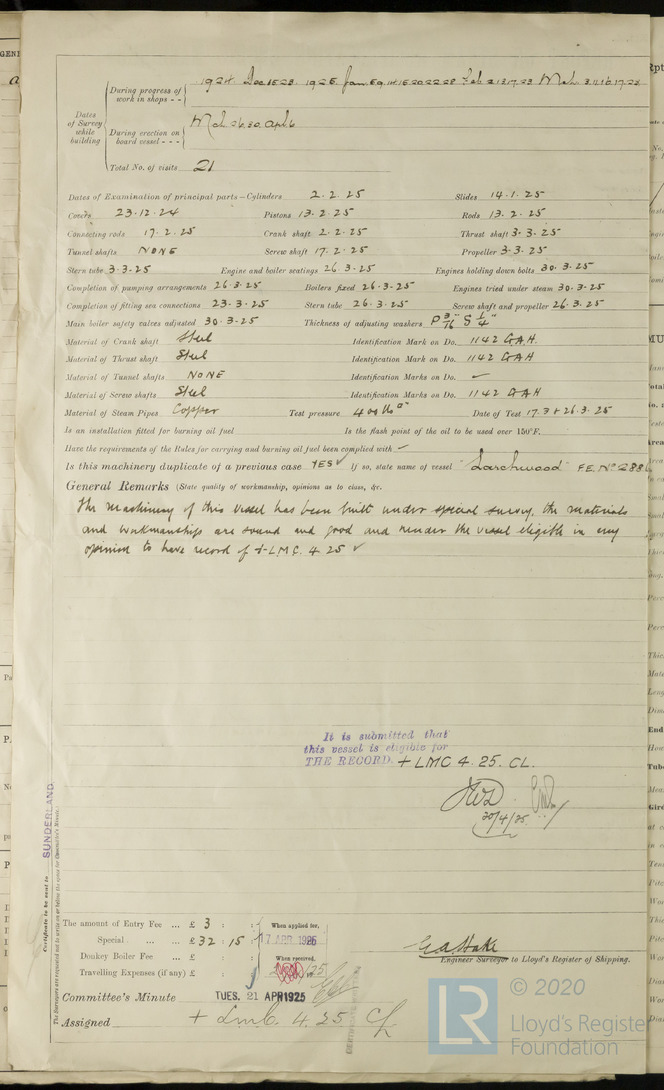 1924. Dec 15.23. 1925. Jan 5.9.14.15.20.22.28 Feb 2.13.17.23 Mch. 3.11.16.17.23
During progress of
work in shops - -
Dates
of Survey
while
building
Mch 26.30. Apl 6
During erection on
board vessel - - -
Total No. of visits 21
Dates of Examination of principal parts—Cylinders 2.2.25 Slides 14.1.25
Covers 23.12.24 Pistons 13.2.25 Rods 13.2.25
Connecting rods 17.2.25 Crank shaft 2.2.25 Thrust shaft 3.3.25
Tunnel shafts NONE Screw shaft 17.2.25 Propeller 3.3.25
Stern tube 3.3.25 Engine and boiler seatings 26.3.25 Engines holding down bolts 30.3.25
Completion of pumping arrangements 26.3.25 Boilers fixed 26.3.25 Engines tried under steam 30.3.25
Completion of fitting sea connections 23.3.25 Stern tube 26.3.25 Screw shaft and propeller 26.3.25
Main boiler safety valves adjusted 30.3.25 Thickness of adjusting washers P 3/16" S 1/4"
Material of Crank shaft Steel Identification Mark on Do. 1142 G.A.H.
Material of Thrust shaft Steel Identification Mark on Do. 1142 G.A.H.
Material of Tunnel shafts NONE Identification Marks on Do. ✓
Material of Screw shafts Steel Identification Marks on Do. 1142 GAH
Material of Steam Pipes Copper Test pressure 400 lbs □" Date of Test 17.3 & 26.3.25
Is an installation fitted for burning oil fuel Is the flash point of the oil to be used over 150°F.
Have the requirements of the Rules for carrying and burning oil fuel been complied with ✓
Is this machinery duplicate of a previous case YES ✓ If so, state name of vessel "Larchwood" F.E. No 288
General Remarks (State quality of workmanship, opinions as to class, &c.
The machinery of this vessel has been built under special survey, the materials
and workmanships are sound and good and render the vessel eligible in my
opinion to have record of +LMC. 4.25 ✓
It is submitted that
this vessel is eligible for
THE RECORD. + LMC 4.25. CL.
JWD
20/4/25
Certificate to be sent to SUNDERLAND
The amount of Entry Fee ... £ 3 : : When applied for,
Special ... ... £ 32 : 15 : 17 APR 1925
Donkey Boiler Fee ... £ : : When received,
Travelling Expenses (if any) £ : :
G.A. Hake
Engineer Surveyor to Lloyd's Register of Shipping.
Committee's Minute TUES. 21 APR 1925
Assigned + LMC 4.25 CL
© 2020
LR
Lloyd's Register
Foundation